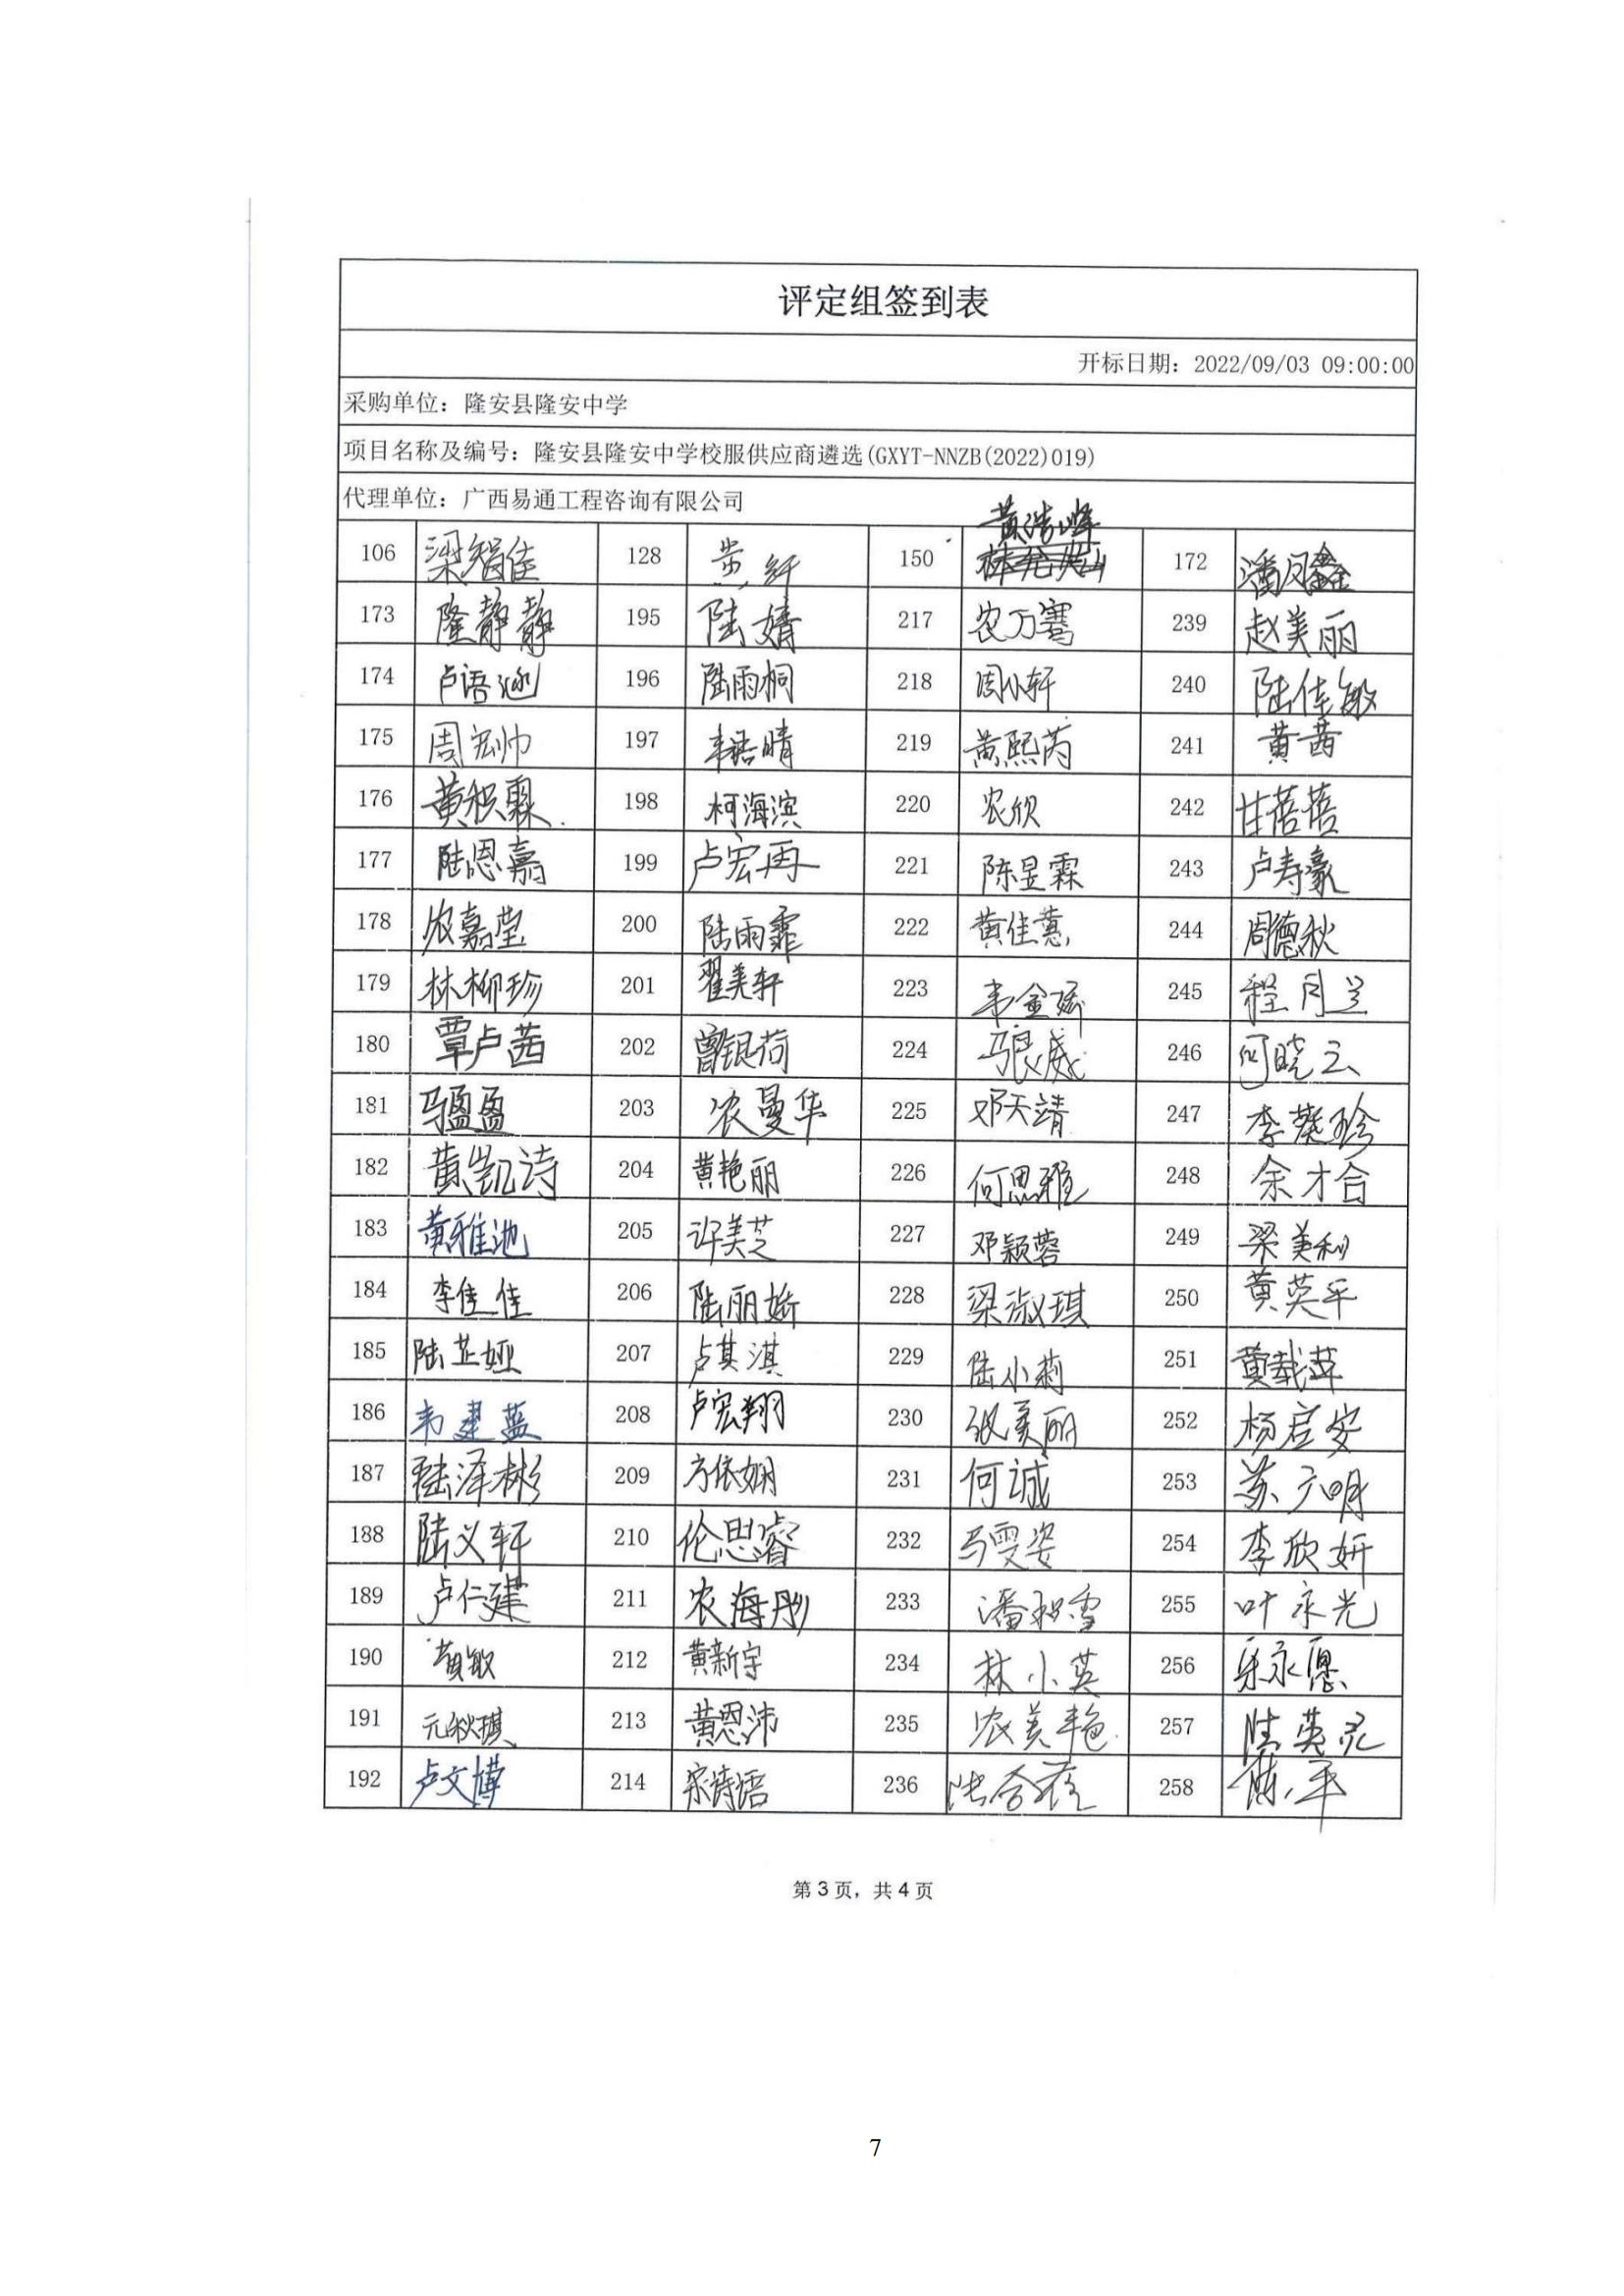 评定组签到表
开标日期：2022/09/03 09:00:00
采购单位：隆安县隆安中学
项目名称及编号：隆安县隆安中学校服供应商遴选(GXYT-NNZB(2022)019)
代理单位：广西易通工程咨询有限公司
黄浩峰
106 梁智佳 128 黄纤 150 172 潘凤鑫
173 隆静静 195 陆婧 217 农万骞 239 赵美丽
174 卢语涵 196 陆雨桐 218 周小轩 240 陆佳敏
175 周宏帅 197 韦晴 219 黄熙芮 241 黄茜
176 黄积霖 198 柯海滨 220 农欣 242 甘蓓蓓
177 陆恩嘉 199 卢宏再 221 陈昱霖 243 卢寿豪
178 农嘉莹 200 陆雨霏 222 黄佳蕙 244 周德秋
179 林柳珍 201 翟美轩 223 韦金瑶 245 程月兰
180 覃卢茜 202 曾银荷 224 马良威 246 何晓云
181 马盈盈 203 农曼华 225 邓天靖 247 李葵珍
182 黄凯诗 204 黄艳丽 226 何思雅 248 余才合
183 黄雅池 205 许美芝 227 邓颖蓉 249 梁美利
184 李佳佳 206 陆丽娇 228 梁淑琪 250 黄英平
185 陆芷娅 207 卢其淇 229 陆小莉 251 黄载萍
186 韦建蓝 208 卢宏翔 230 张美丽 252 杨启安
187 陆泽彬 209 方依娴 231 何诚 253 苏六明
188 陆义轩 210 伦思睿 232 马雯姿 254 李欣妍
189 卢仁建 211 农海彤 233 潘积雪 255 叶永光
190 黄敏 212 黄新宇 234 林小英 256 永恩
191 元秋琪 213 黄恩沛 235 农美艳 257 陆英灵
192 卢文博 214 宋诗语 236 陆 258 陈平
第 3 页，共 4 页
7